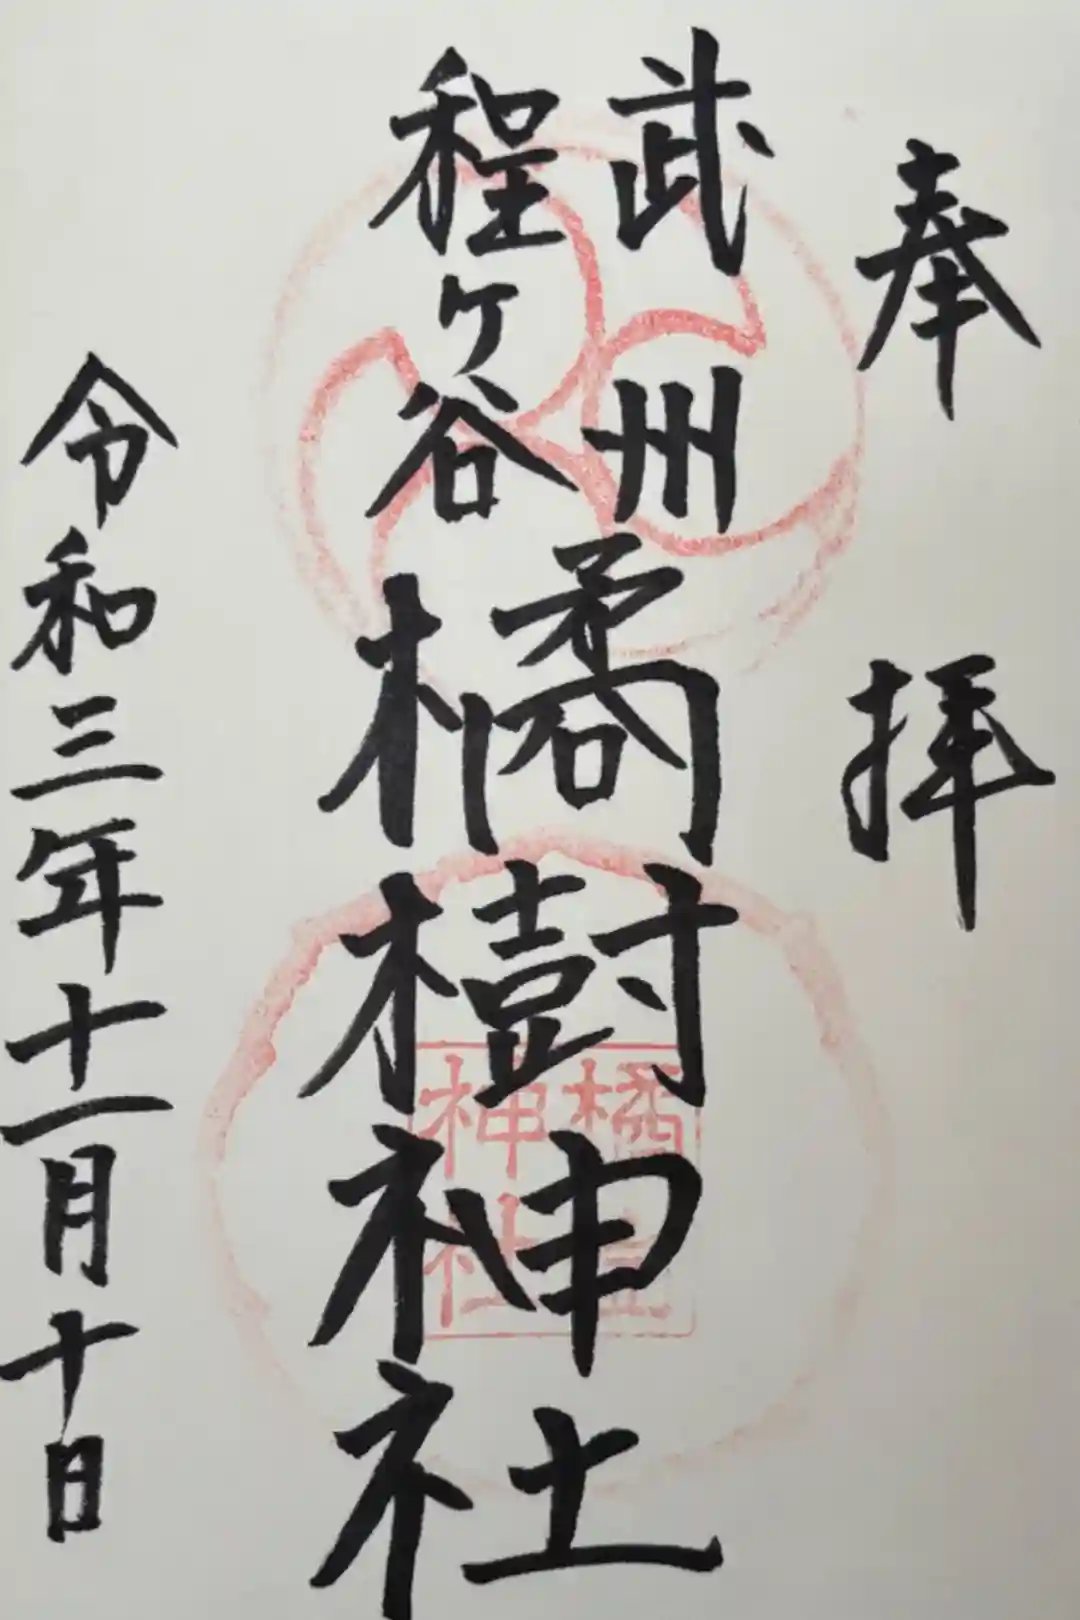 奉拝
武州
程ヶ谷
橘樹神社
令和三年十一月十日
橘樹
神社